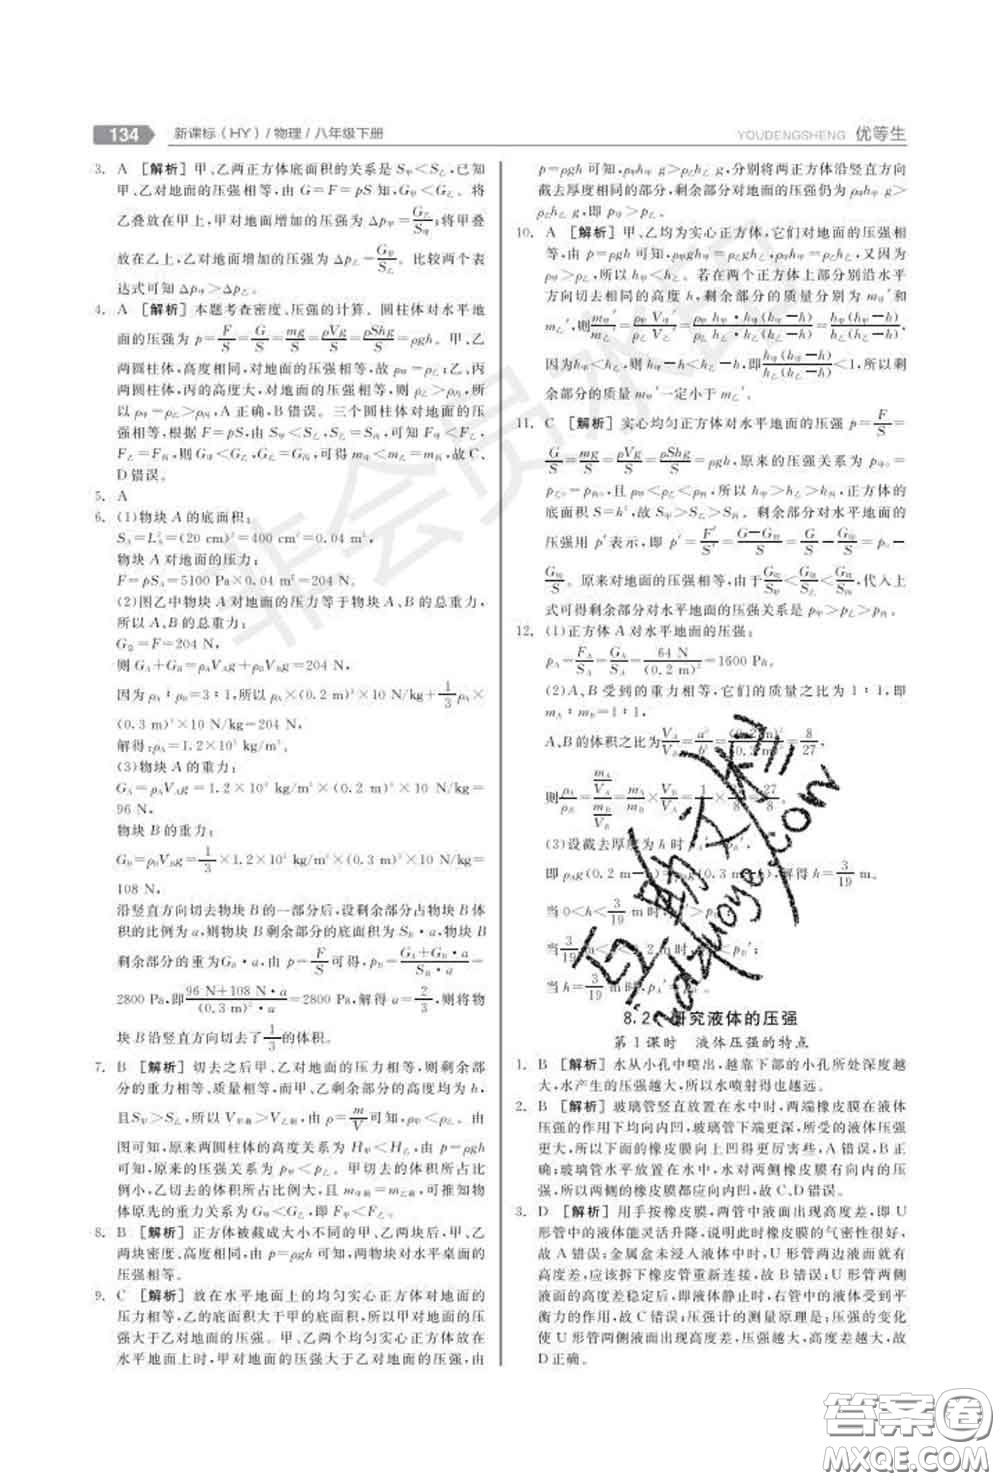 134 新课标(HY)/物理/八年级下册
YOUDENGSHENG 优等生
3. A [解析] 甲、乙两正方体底面积的关系是S甲<S乙,已知
甲、乙对地面的压强相等,由G=F=pS知,G甲<G乙。将
乙叠放在甲上,甲对地面增加的压强为Δp甲=G乙/S甲;将甲叠
放在乙上,乙对地面增加的压强为Δp乙=G甲/S乙。比较两个表
达式可知Δp甲>Δp乙。
4. A [解析] 本题考查密度、压强的计算。圆柱体对水平地
面的压强为p=F/S=G/S=mg/S=ρVg/S=ρShg/S=ρgh。甲、乙
两圆柱体,高度相同,对地面的压强相等,故ρ甲=ρ乙;乙、丙
两圆柱体,丙的高度大,对地面的压强相等,则ρ乙>ρ丙,所
以ρ甲=ρ乙>ρ丙,A正确,B错误。三个圆柱体对地面的压
强相等,根据F=pS,由S甲<S乙,S乙=S丙,可知F甲<F乙,
F乙=F丙,则G甲<G乙,G乙=G丙,可得m甲<m乙=m丙,故C、
D错误。
5. A
6. (1)物块A的底面积:
S_A=L²_A=(20 cm)²=400 cm²=0.04 m²,
物块A对地面的压力:
F=pS_A=5100 Pa×0.04 m²=204 N。
(2)图乙中物块A对地面的压力等于物块A、B的总重力,
所以A、B的总重力:
G总=F=204 N,
则G_A+G_B=ρ_AV_Ag+ρ_BV_Bg=204 N,
因为ρ_A∶ρ_B=3∶1,所以ρ_A×(0.2 m)³×10 N/kg+1/3ρ_A×
(0.3 m)³×10 N/kg=204 N,
解得:ρ_A=1.2×10³ kg/m³。
(3)物块A的重力:
G_A=ρ_AV_Ag=1.2×10³ kg/m³×(0.2 m)³×10 N/kg=
96 N,
物块B的重力:
G_B=ρ_BV_Bg=1/3×1.2×10³ kg/m³×(0.3 m)³×10 N/kg=
108 N,
沿竖直方向切去物块B的一部分后,设剩余部分占物块B体
积的比例为a,则物块B剩余部分的底面积为S_B·a,物块B
剩余部分的重为G_B·a,由p=F/S可得,p=(G_A+G_B·a)/(S_B·a)=
2800 Pa,即(96 N+108 N·a)/((0.3 m)²·a)=2800 Pa,解得a=2/3,则将物
块B沿竖直方向切去了1/3的体积。
7. B [解析] 切去之后甲、乙对地面的压强相等,则剩余部
分的压力相等,质量相等,而甲、乙剩余部分的高度均为h,
且S甲>S乙,所以V甲剩>V乙剩,由ρ=m/V可知,ρ甲<ρ乙。由
图可知,原来两圆柱体的高度关系为H甲<H乙,由p=ρgh
可知,原来的压强关系为p甲<p乙。甲切去的体积所占比
例小,乙切去的体积所占比例大,且m甲剩=m乙剩,可知物
体原先的重力关系为G甲<G乙,即F甲<F乙。
8. B [解析] 正方体被截成大小不同的甲、乙两块后,甲、乙
两块密度、高度相同,由p=ρgh可知,两物块对水平桌面的
压强相等。
9. C [解析] 放在水平地面上的均匀实心正方体对地面的
压力相等,乙的底面积大于甲的底面积,所以甲对地面的压强
大于乙对地面的压强。甲、乙两个均匀实心正方体放在
水平地面上时,甲对地面的压强大于乙对地面的压强,由
p=ρgh可知,ρ甲h甲g>ρ乙h乙g,分别将两正方体沿竖直方向
截去厚度相同的部分,剩余部分对地面的压强仍为ρ甲h甲g>
ρ乙h乙g,即p甲>p乙。
10. A [解析] 甲、乙均为实心正方体,它们对地面的压强相
等,由p=ρgh可知,ρ甲gh甲=ρ乙gh乙,ρ甲h甲=ρ乙h乙,又因为
ρ甲>ρ乙,所以h甲<h乙。若在两个正方体上部沿水平
方向切去相同的高度h,剩余部分的质量分别为m甲′和
m乙′,则m甲′/m乙′=ρ甲V甲′/ρ乙V乙′=ρ甲h甲·h甲(h甲-h)/ρ乙h乙·h乙(h乙-h)=h甲(h甲-h)/h乙(h乙-h),
因为h甲<h乙,则h甲-h<h乙-h,即h甲(h甲-h)/h乙(h乙-h)<1,所以剩
余部分的质量m甲′一定小于m乙′。
11. C [解析] 实心均匀正方体对水平地面的压强p=F/S=
G/S=mg/S=ρVg/S=ρShg/S=ρgh,原来的压强关系为p甲=
p乙=p丙,且ρ甲<ρ乙<ρ丙,所以h甲>h乙>h丙,正方体的
底面积S=h²,故S甲>S乙>S丙。剩余部分对水平地面的
压强用p′表示,即p′=F′/S′=(G-G切)/S=G/S-G切/S=p-
G切/S。原来对地面的压强相等,由于G切/S甲<G切/S乙<G切/S丙,代入上
式可得剩余部分对水平地面的压强关系是p甲>p乙>p丙。
12. (1)正方体A对水平地面的压强:
p_A=F_A/S_A=G_A/S_A=64 N/(0.2 m)²=1600 Pa。
(2)A、B受到的重力相等,它们的质量之比为1∶1,即
m_A∶m_B=1∶1,
A、B的体积之比为V_A/V_B=a³/b³=(0.2 m)³/(0.3 m)³=8/27,
(3)设截去厚度为h时
解得h=3/19 m。
当0<h<3/19 m时,
当h=3/19 m时,
8.2 研究液体的压强
第1课时 液体压强的特点
1. B [解析] 水从小孔中喷出,越靠下部的小孔所处深度越
大,水产生的压强越大,所以水喷射得也越远。
2. B [解析] 玻璃管竖直放置在水中时,两端橡皮膜在液体
压强的作用下均向内凹,玻璃管下端更深,所受的液体压强
更大,所以下面的橡皮膜向上凹得更厉害些,A错误,B正
确;玻璃管水平放置在水中,水对两侧橡皮膜有向内的压
强,则两侧的橡皮膜都应向内凹,故C、D错误。
3. D [解析] 用手按橡皮膜,两管中液面出现高度差,即U
形管中的液体能灵活升降,说明此时橡皮膜的气密性很好,
故A错误;金属盒未浸入液体中时,U形管两边液面就有
高度差,应该拆下橡皮管重新连接,故B错误;U形管两侧
液面的高度差稳定后,即液体静止时,右管中的液体受到平
衡力的作用,故C错误;压强计的测量原理是:压强的变化
使U形管两侧液面出现高度差,压强越大,高度差越大,故
D正确。
非会员水印
答案卷
MXQE.COM